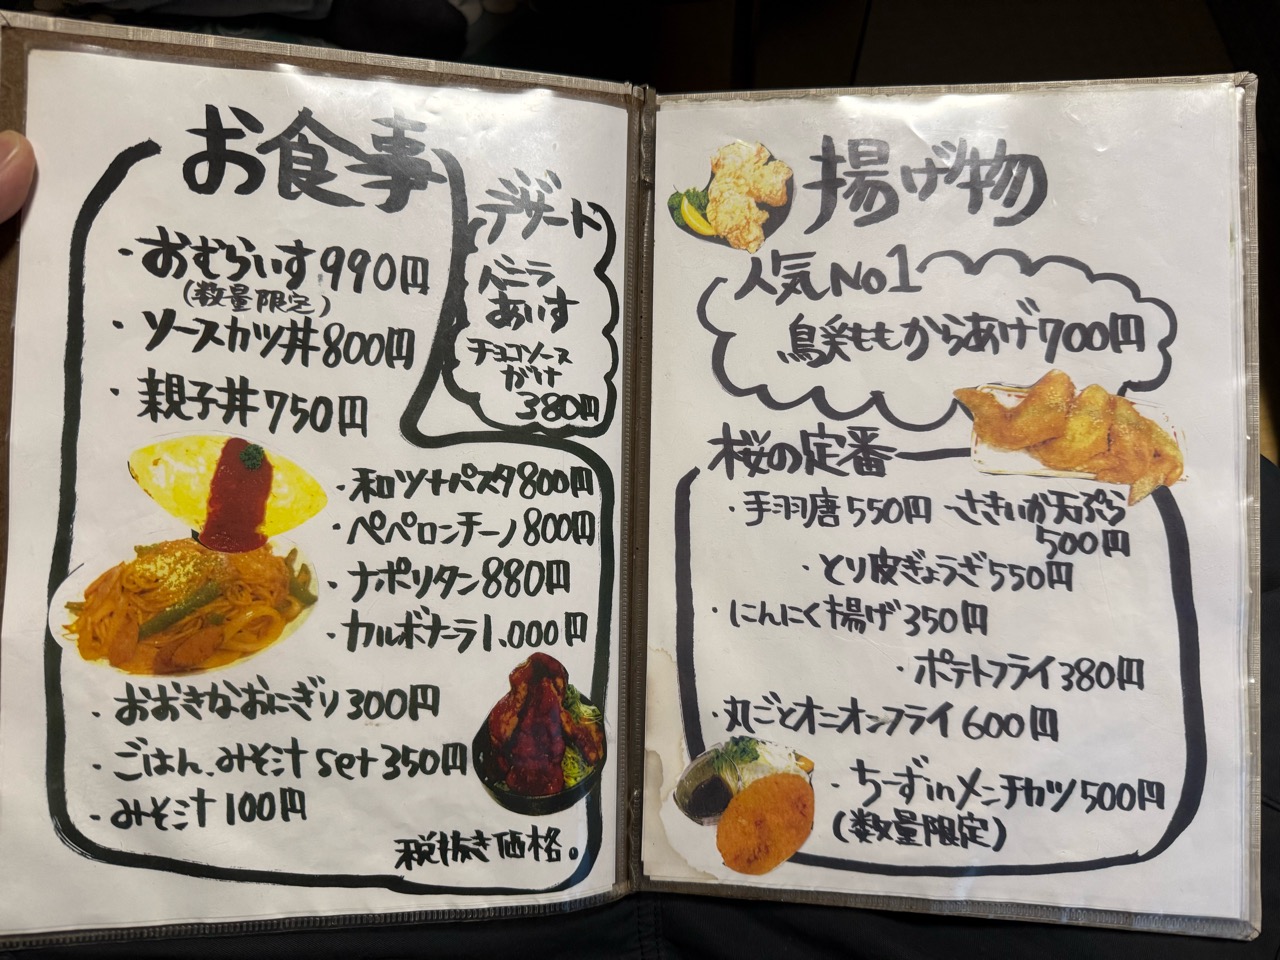 お食事
・おむらいす990円
(数量限定)
・ソースカツ丼800円
・親子丼750円
・和ツナパスタ800円
・ペペロンチーノ800円
・ナポリタン880円
・カルボナーラ1.000円
・おおきなおにぎり300円
・ごはん、みそ汁set350円
・みそ汁100円
税抜き価格。
デザート
バニラ
あいす
チョコソース
がけ
380円
揚げ物
人気No1
鳥ももからあげ700円
桜の定番
・手羽唐550円
・さきいか天ぷら
500円
・とり皮ぎょうざ550円
・にんにく揚げ350円
・ポテトフライ380円
・丸ごとオニオンフライ600円
・ちーずinメンチカツ500円
(数量限定)